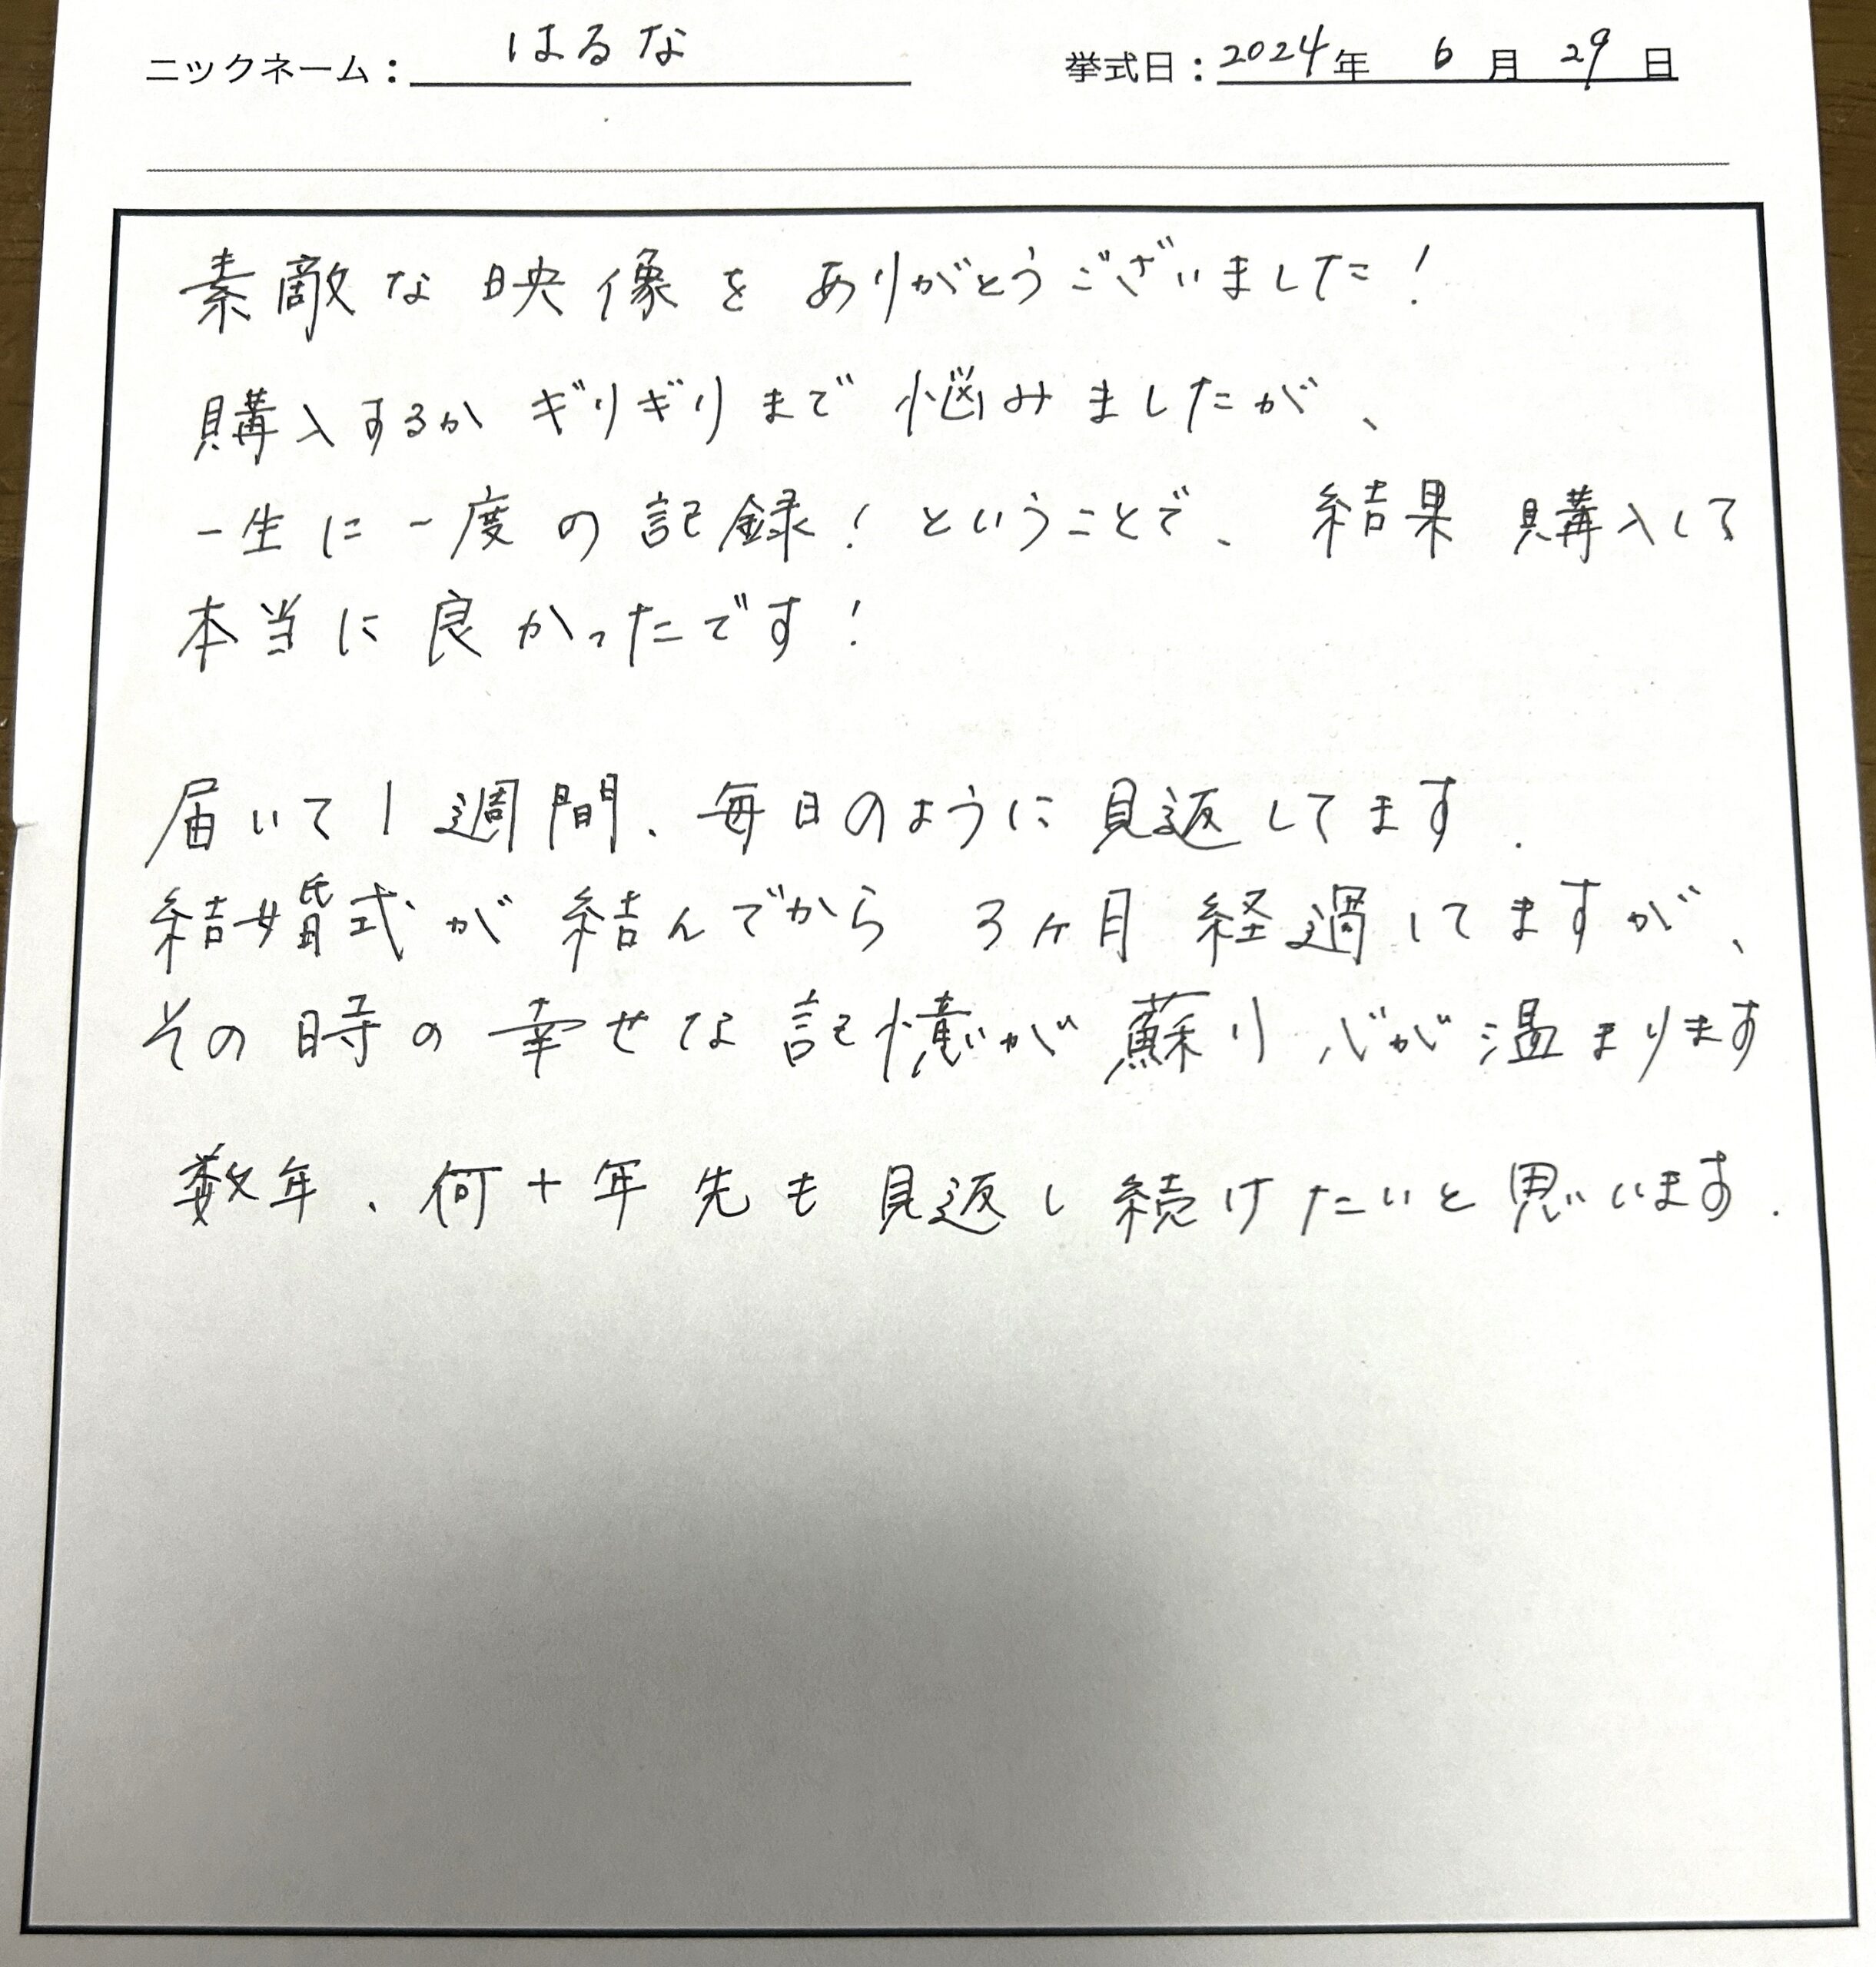 ニックネーム：はるな 挙式日：2024年 6月 29日
素敵な映像をありがとうございました！
購入するかギリギリまで悩みましたが、
一生に一度の記録！ということで、結果購入して
本当に良かったです！
届いて1週間、毎日のように見返してます.
結婚式が結んでから 3ヶ月経過してますが、
その時の幸せな記憶が蘇り心が温まります
数年、何十年先も見返し続けたいと思います.